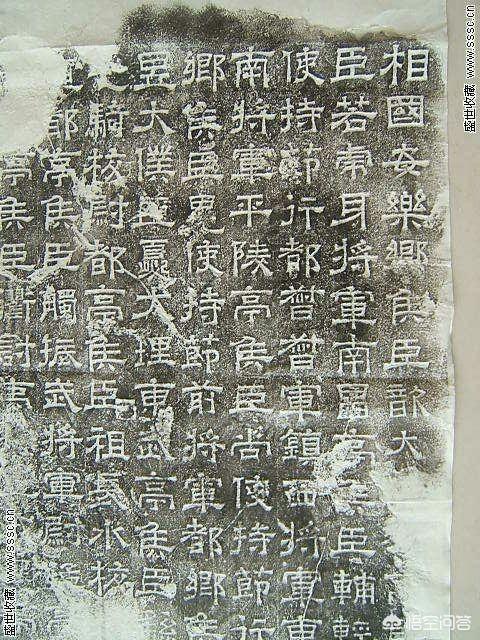 相國安樂鄉侯臣歆大
臣若身將軍南亭臣輔輕
使持節行都督督軍鎮西將軍東
南將軍平陵亭侯臣尚使持節行
鄉侯臣晃使持節前將軍都鄉
昱大僕臣夔大理東武亭侯臣
騎校尉都亭侯臣祖長水校
都亭侯臣觸振武將軍尉
亭侯臣尉
盛世收藏 www.sssc.cn
盛世收藏 www.sssc.cn
盛世收藏 www.sssc.cn
盛世收藏 www.sssc.cn
悟空问答